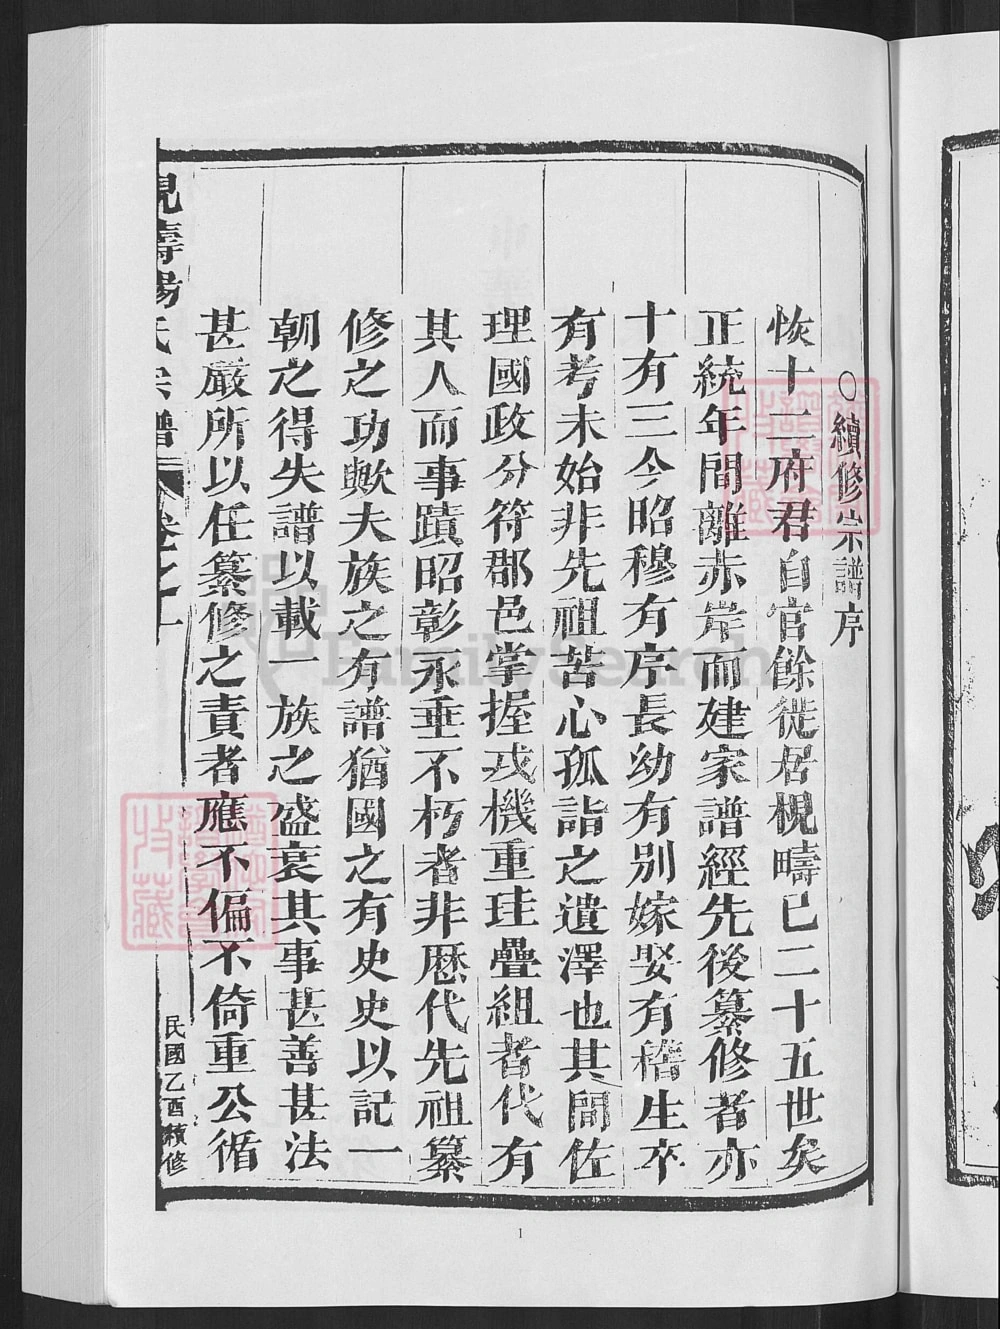 ○續修宗譜序
恢十二府君自官餘徙居梘疇已二十五世矣
正統年間離赤岸而建家譜經先後纂修者亦
十有三今昭穆有序長幼有別嫁娶有稽生卒
有考未始非先祖苦心孤詣之遺澤也其間佐
理國政分符郡邑掌握戎機重珪疊組者代有
其人而事蹟昭彰永垂不朽者非歷代先祖纂
修之功歟夫族之有譜猶國之有史史以記一
朝之得失譜以載一族之盛衰其事甚善甚法
甚嚴所以任纂修之責者應不偏不倚重公循
梘疇楊氏宗譜 卷之一 民國乙酉續修
FamilySearch
1